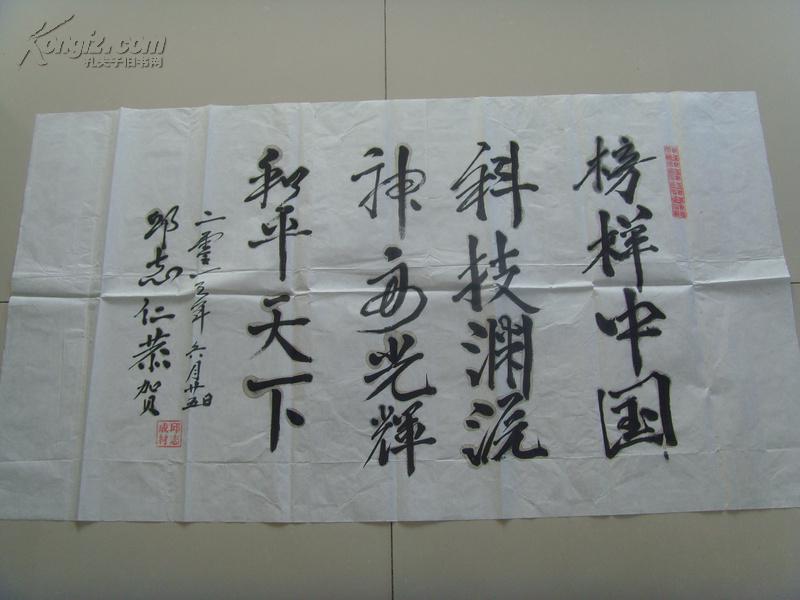 榜样中国
科技渊沅
神州光輝
和平天下
二零一五年六月廿五日
邱志仁恭贺
邱志
成材
Kongfz.com
孔夫子旧书网